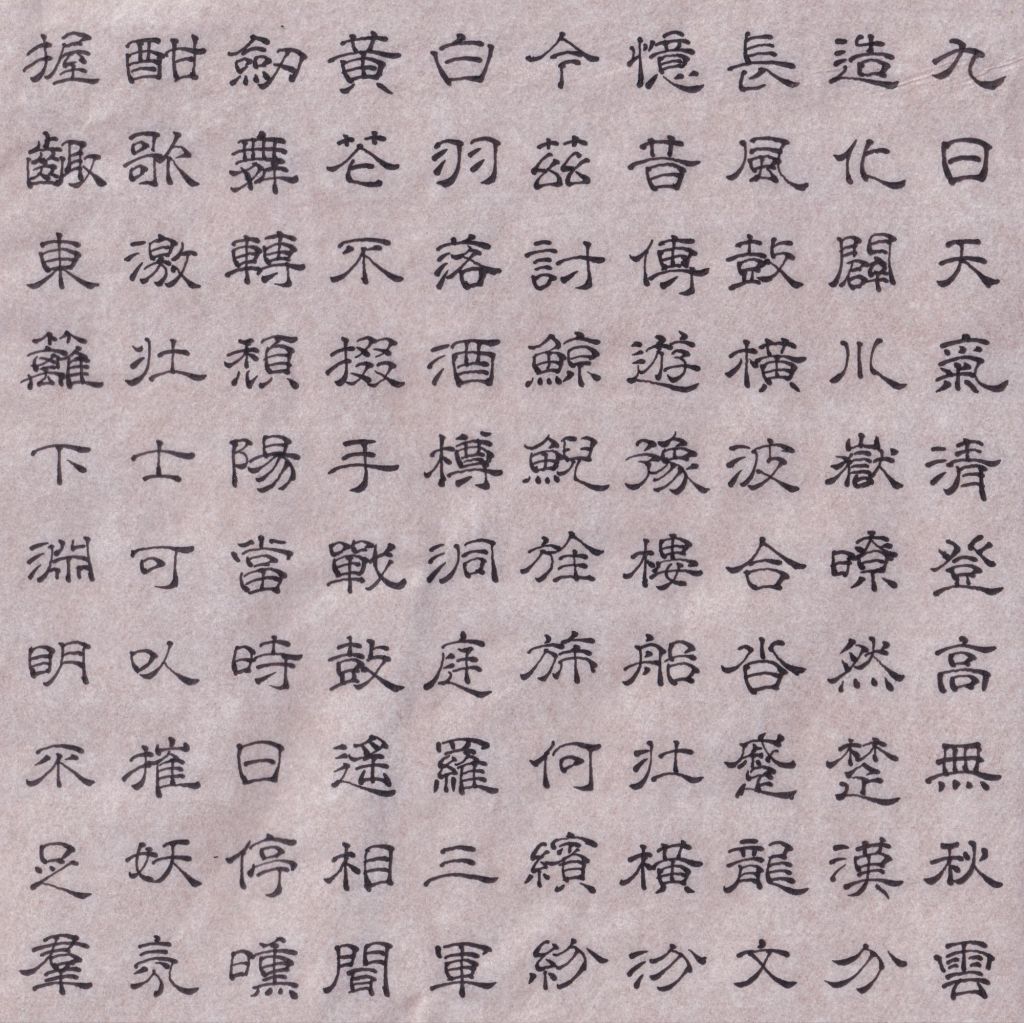 九日天氣清登高無秋雲
造化闢川嶽瞭然楚漢分
長風鼓橫波合沓蹙龍文
憶昔傳遊豫樓船壯橫汾
今茲討鯨鯢旌旆何繽紛
白羽落酒樽洞庭羅三軍
黃花不掇手戰鼓遙相聞
劍舞轉頹陽當時日停曛
酣歌激壯士可以摧妖氛
握齱東籬下淵明不足羣